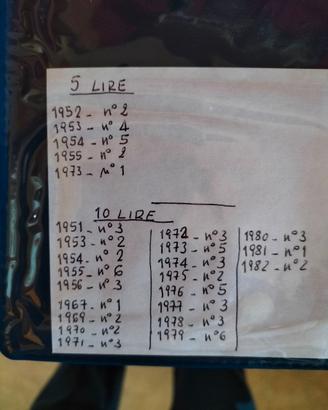 5 LIRE
1952 - n° 2
1953 - n° 4
1954 - n° 5
1955 - n° 2
1973 - n° 1
10 LIRE
1951 - n° 3
1953 - n° 2
1954 - n° 2
1955 - n° 6
1956 - n° 3
1967 - n° 1
1969 - n° 2
1970 - n° 2
1971 - n° 3
1972 - n° 3
1973 - n° 5
1974 - n° 3
1975 - n° 2
1976 - n° 5
1977 - n° 3
1978 - n° 3
1979 - n° 6
1980 - n° 3
1981 - n° 1
1982 - n° 2